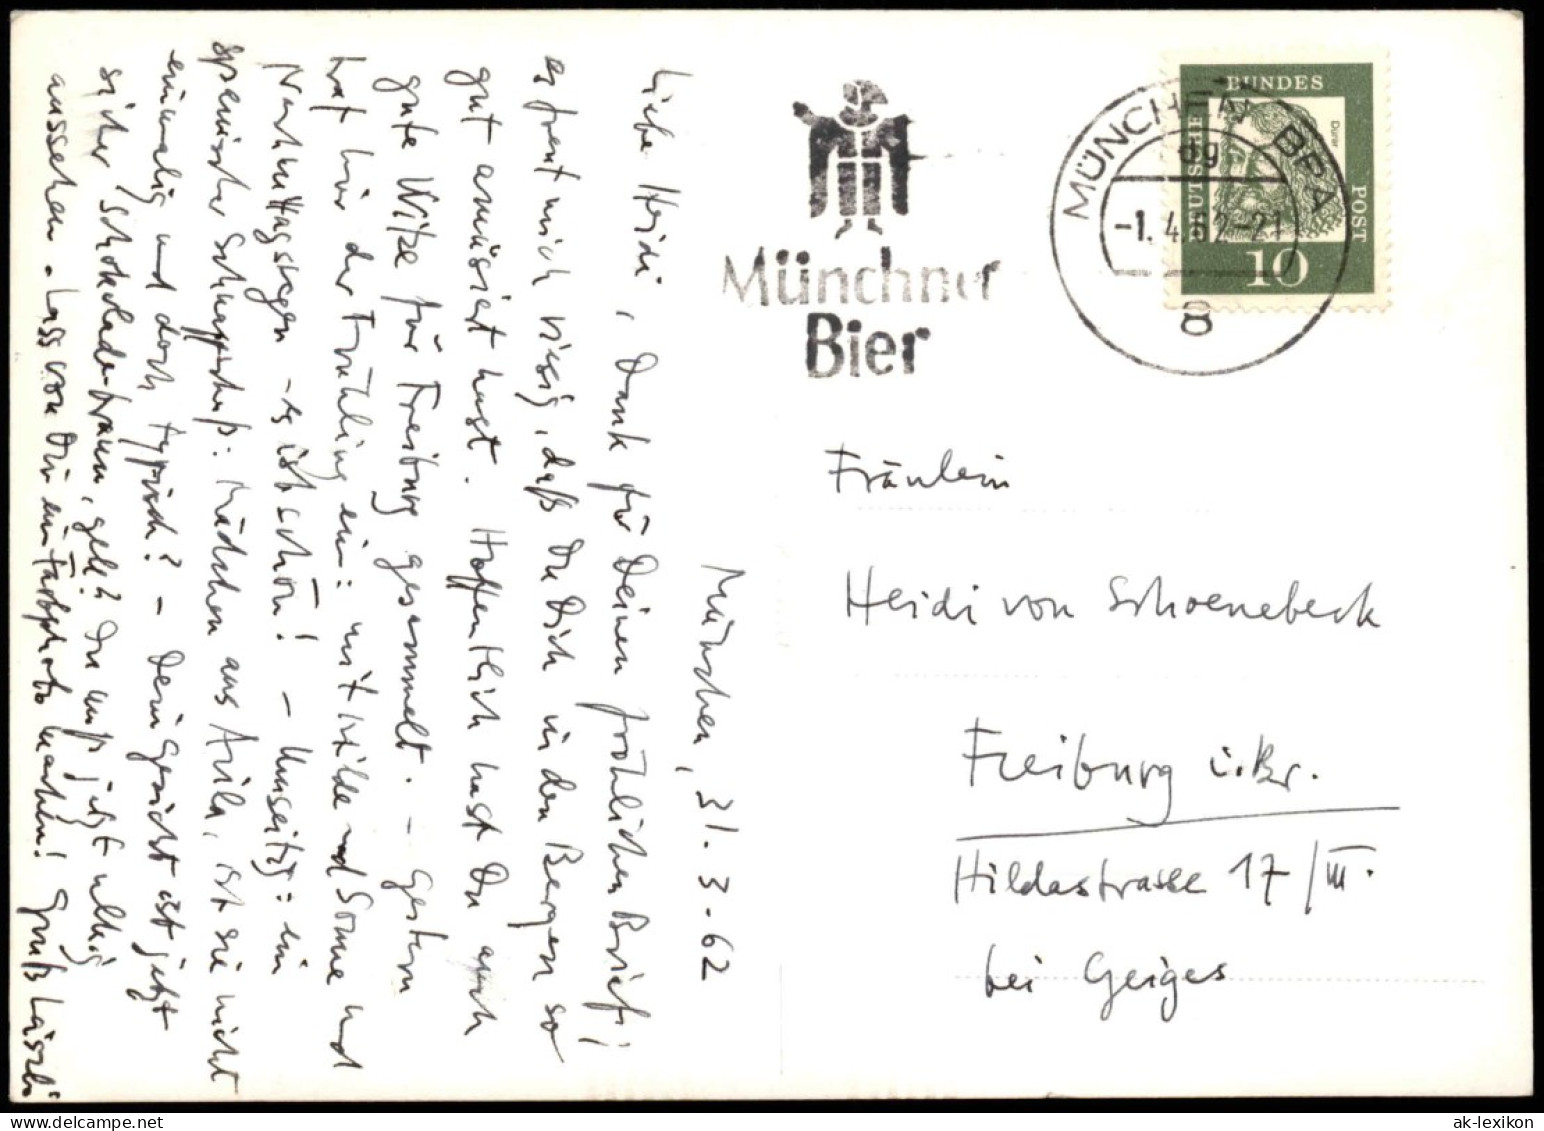 München, 31.3.62
Liebe Heidi, Dank für Deinen fröhlichen Brief;
es freut mich riesig, daß Du Dich in den Bergen so
gut amüsiert hast. Hoffentlich hast Du auch
gute Witze für Freiburg gesammelt. – Gestern
traf hier der Frühling ein: mit Milde und Sonne und
Nachmittagsregen – es ist schön! – Umseitig: ein
spanischer Schnappschuß: Mädchen aus Avila, ist sie nicht
einmalig und doch typisch? – Dein Gesicht ist jetzt
sicher schokoladebraun, gell? Du mußt jetzt ulkig
aussehen. Lass von Dir ein Farbphoto machen! Gruß
Münchner
Bier
MÜNCHEN BPA
dg
-1.4.62-21
8
DEUTSCHE BUNDES POST
Dürer
10
Fräulein
Heidi von Schoenebeck
Freiburg i. Br.
Hildastrasse 17/III.
bei Geiges
ak-lexikon